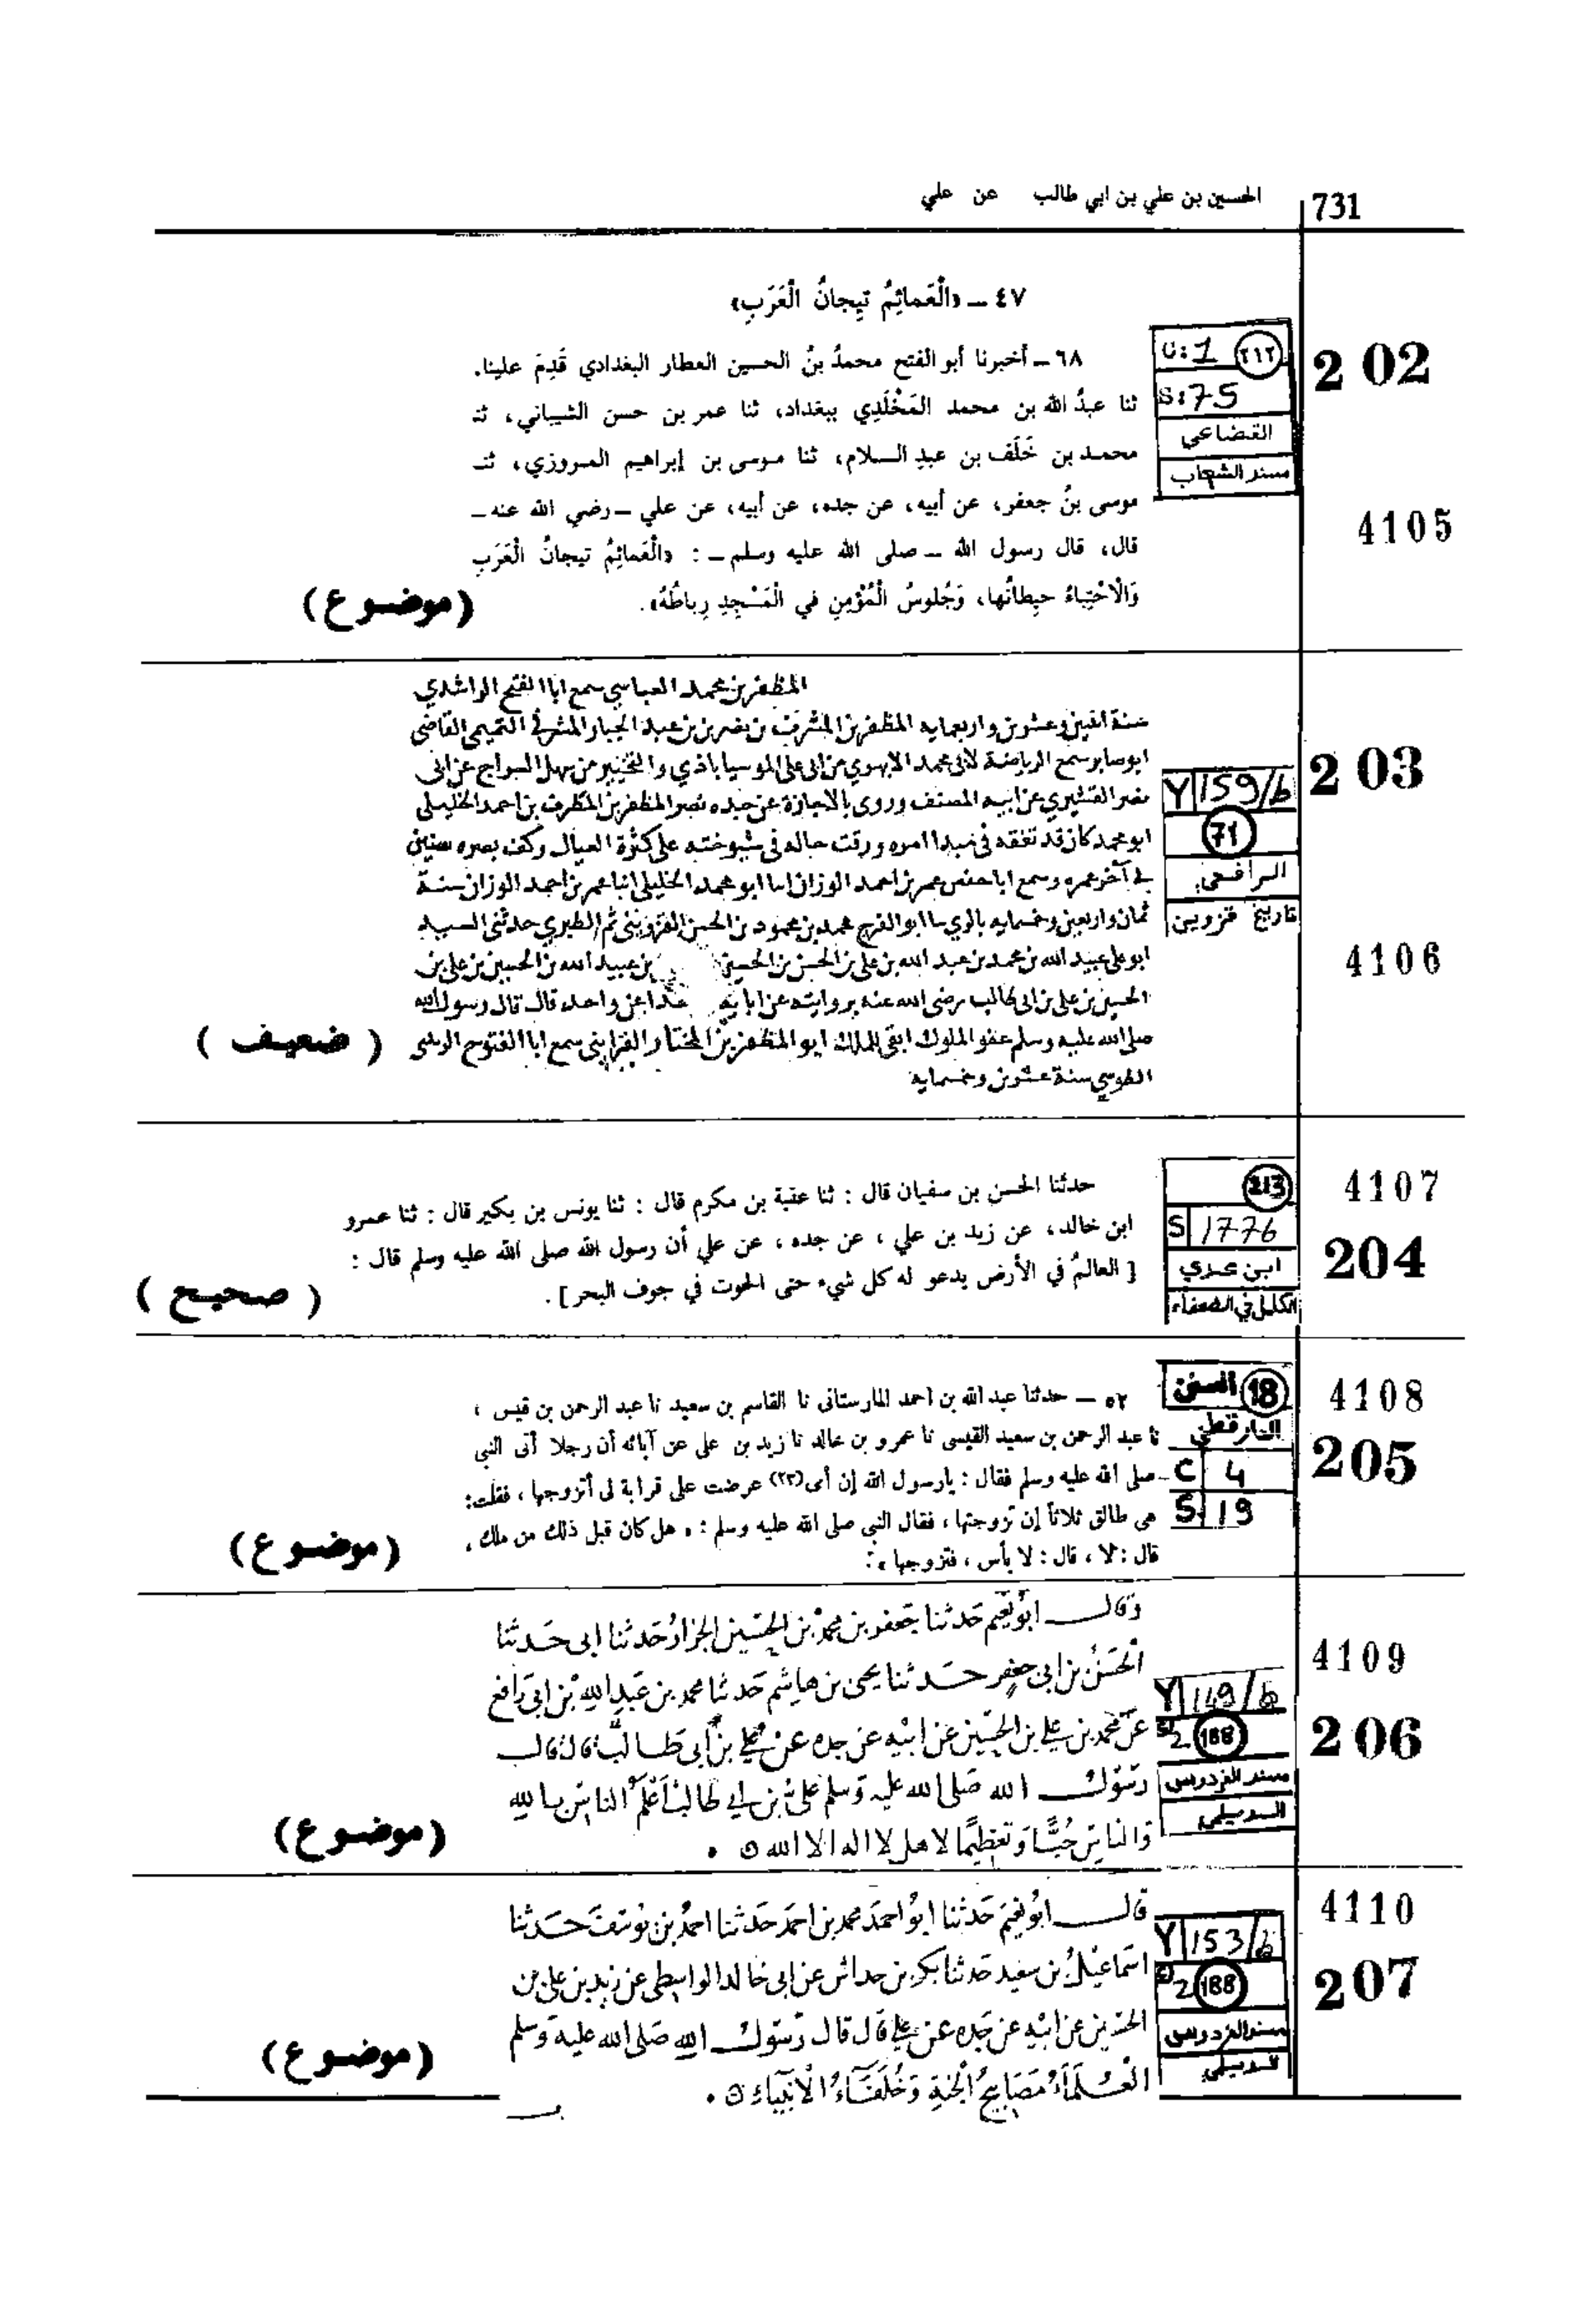 731
الحسين بن علي بن ابي طالب عن علي
٤٧ – «الْعَمائِمُ تيِجانُ الْعَرَبِ»
202
U:1 ٢١٢
S:75
القضاعي
مسند الشهاب
4105
٦٨ – أخبرنا أبو الفتح محمدُ بنُ الحسين العطار البغدادي قَدِمَ علينا.
ثنا عبدُ الله بن محمد المَخْلَدِي ببغداد، ثنا عمر بن حسن الشيباني، ثنـ
محمد بن خَلَف بن عبدِ السلام، ثنا موسى بن إبراهيم المروزي، ثنـ
موسى بنُ جعفر، عن أبيه، عن جده، عن أبيه، عن علي – رضي الله عنه –
قال، قال رسول الله – صلى الله عليه وسلم – : «الْعَمائِمُ تيجانُ الْعَرَبِ
وَالْاحْتِباءُ حيِطانُها، وَجُلوسُ الْمُؤْمِنِ في الْمَسْجِدِ رِباطُهُ».
(موضوع)
203
Y 159/b
71
الرافعي
تاريخ قزوين
4106
المظفر بن محمد العباسي سمع ابا الفتح الراشدي
سنة اثنين وعشرين واربعمايه المظفر بن المشرف بن نصر بن عبد الجبار التميمي القاضي
ابو صابر سمع الرياضة لابي محمد الابهري من ابي علي الموسياباذي عن ابي
نصر القشيري عن ابيه المصنف وروى بالاجازة عن جده نصر المظفر بن المطرف بن احمد الخليلي
ابو محمد كان قد تفقه في مبدا امره ورقت حاله في شيوخته على كثرة العيال وكف بصره سنين
في آخر عمره وسمع ابا حفص عمر بن احمد الوزان ابنا ابو محمد الخليلي انبا عمر بن احمد الوزان سنة
ثمان واربعين وخمسمايه بالري سا ابو الفرج محمد بن محمود بن الحسن القزويني ثم الطبري حدثني السيد
ابو علي عبيد الله بن محمد بن عبد الله بن علي بن الحسن بن الحسين بن عبيد الله بن الحسين بن علي بن
الحسين بن علي بن ابي طالب رضي الله عنه بروايته عن ابايه واحد قال قال رسول الله
صلى الله عليه وسلم عفو الملوك ابقى للملك ابو المظفر بن المختار القزويني سمع ابا الفتوح
الطوسي سنة عشرين وخمسمايه
(ضعيف)
4107
213
S 1776
204
ابن عدي
الكامل في الضعفاء
حدثنا الحسن بن سفيان قال : ثنا عقبة بن مكرم قال : ثنا يونس بن بكير قال : ثنا عمرو
ابن خالد، عن زيد بن علي ، عن جده ، عن علي أن رسول الله صلى الله عليه وسلم قال :
[ العالمُ في الأرض يدعو له كل شيء حتى الحوت في جوف البحر] .
(صحيح)
4108
18 السنن
الدارقطني
205
C 4
S 19
٥٢ – حدثنا عبد الله بن احمد المارستانى نا القاسم بن سعيد نا عبد الرحمن بن قيس ،
نا عبد الرحمن بن سعيد القيسى نا عمرو بن خالد نا زيد بن على عن آبائه أن رجلا أتى النبي
صلى الله عليه وسلم فقال : يارسول الله إن أمى(٢٣) عرضت على قرابة لى أتزوجها ، فقلت:
هى طالق ثلاثاً إن تزوجتها ، فقال النبي صلى الله عليه وسلم : ، هل كان قبل ذلك من ملك ،
قال : لا ، قال : لا بأس ، فتزوجها ، :
(موضوع)
4109
Y 149/b
206
2 188
مسند الفردوس
الديلمي
وَقال ابُو نعَيم حَدثنا جَعفر بن محمدُ بن الحسَين الخزازُ حَدثنا ابى حَدثنا
الحَسنُ بن ابى جعفر حَدثنا يحيى بن هاشم حَدثنا محمد بن عَبد الله بْن ابى رَافع
عَن محمد بن علي بن الحسَين عَن ابيْه عَن جده عَن علي بن أبى طَالب قال قال
رَسُول الله صَلى الله عليه وَسلم علي بن ابي طالب أعْلَم الناسِ بالله
وَالناس حُبًّا وَتَعظيمًا لاهل لا اله الا الله ٥ .
(موضوع)
4110
Y 153/b
207
2 188
مسند الفردوس
الديلمي
قال ابُو نعَيم حَدثنا ابُو احمدَ محمد بن احمَد حَدثنا احمدُ بن يُوسُف حَدثنا
اسمَاعيْل بن سعيد حَدثنا بكر بن خداش عَن ابى خالد الواسطى عَن زيد بن على بن
الحسَين عَن ابيْه عَن جَده عَن علي قال قال رَسُول الله صَلى الله عليه وَسلم
الْعُلَمَآءُ مَصَابيحُ الجنةِ وَخُلَفَآءُ الْانبيَاءِ ٥ .
(موضوع)